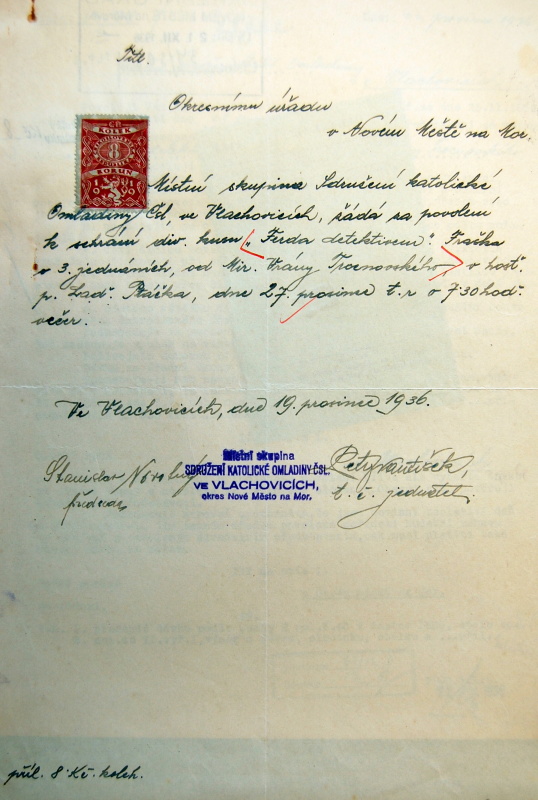 Titl.
Okresnímu úřadu
v Novém Městě na Mor.
KOLEK
8
KORUN
Místní skupina Sdružení katolické
Omladiny Čsl, ve Vlachovicích, žádá sa povolení
k sehrání div. kusu „Ferda detektivem". Fraška
v 3. jednáních, od Mir. Vrány Trocnovského, v host.
p. Lad. Ptáčka, dne 27. prosince t. r. o 730 hod.
večer.
Ve Vlachovicích, dne 19. prosince 1936.
Místní skupina
SDRUŽENÍ KATOLICKÉ OMLADINY ČSL.
VE VLACHOVICÍCH,
okres Nové Město na Mor.
Stanislav
předseda
t. č. jednatel.
příl. 8 Kč. kolek.